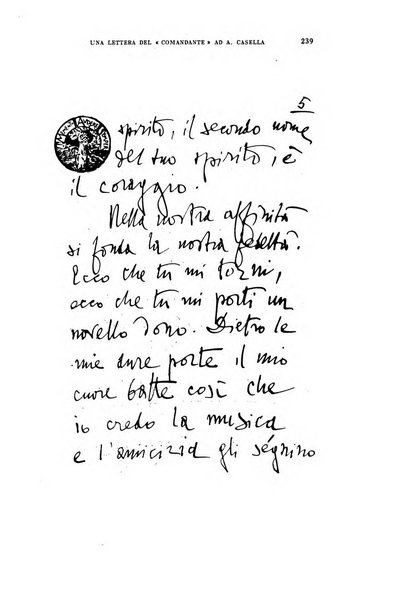 UNA LETTERA DEL « COMANDANTE » AD A. CASELLA 239
5
spirito, il secondo nome
del tuo spirito, è
il coraggio.
Nella nostra affinità
si fonda la nostra fedeltà.
Ecco che tu mi torni,
ecco che tu mi porti un
novello dono. Dietro le
mie dure porte il mio
cuore batte così che
io credo la musica
e l'amicizia gli ségnino